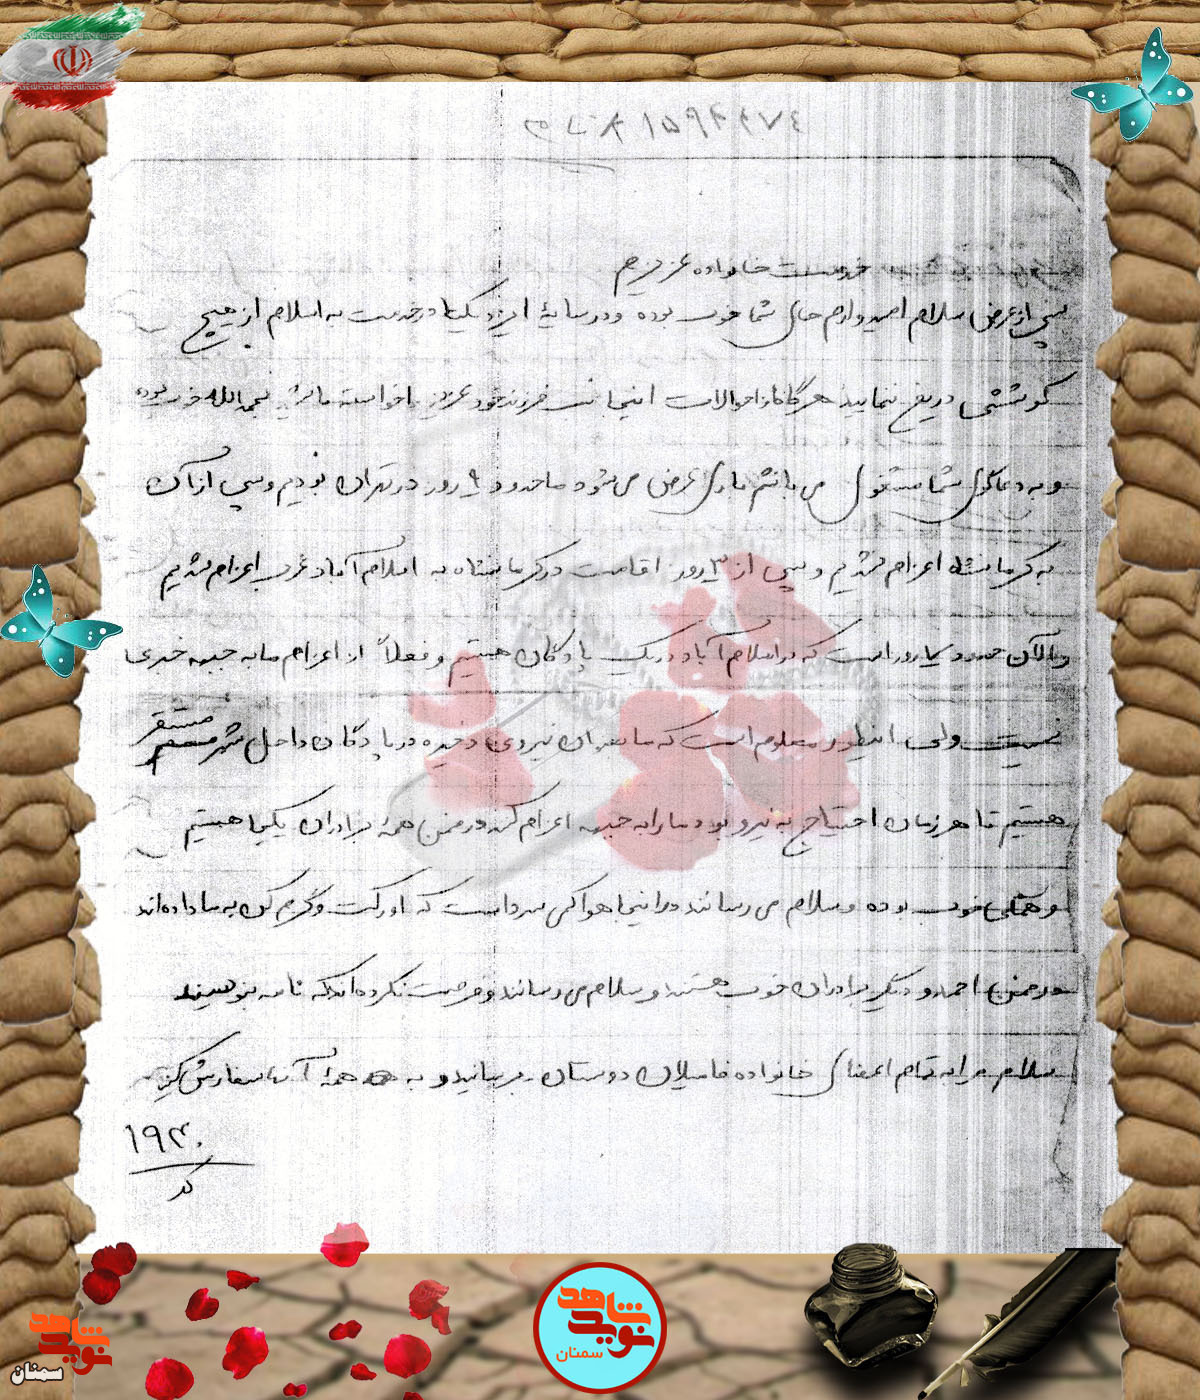 خدمت خانواده عزیزم
پس از عرض سلام امیدوارم حال شما خوب بوده و در سایهٔ ایزد یکتا در خدمت به اسلام از هیچ
کوششی دریغ ننمایید هرگاه از احوالات اینجانب فرزند خود عزیز خواسته باشید بحمدالله خوب بوده
و به دعاگوی شما مشغول می باشم باری عرض می شود ما حدود ۹ روز در تهران بودیم و پس از آن
به کرمانشاه اعزام شدیم و پس از ۳ روز اقامت در کرمانشاه به اسلام آباد غرب اعزام شدیم
و الان حدود روز است که در اسلام آباد در یک پادگان هستیم و فعلاً از اعزام ما به جبهه خبری
نیست ولی اینطور معلوم است که ما بعنوان نیروی ذخیره در پادگان داخل شهر مستقر
هستیم تا هر زمان احتیاج به نیرو بود ما را به جبهه اعزام کنند در ضمن همهٔ برادران یکجا هستیم
و همگی خوب بوده و سلام می رسانند در اینجا هوا کمی سرد است که اورکت و گرم کن به ما داده اند
در ضمن احمد و دیگر برادران خوب هستند و سلام می رسانند و فرصت نکرده اند که نامه بنویسند
سلام مرا به تمام اعضای خانواده فامیلان دوستان برسانید و به همهٔ آنها سفارش کنید
۱۹۳۰
کد
شاهد
نوید
سمنان
شاهد
نوید
سمنان